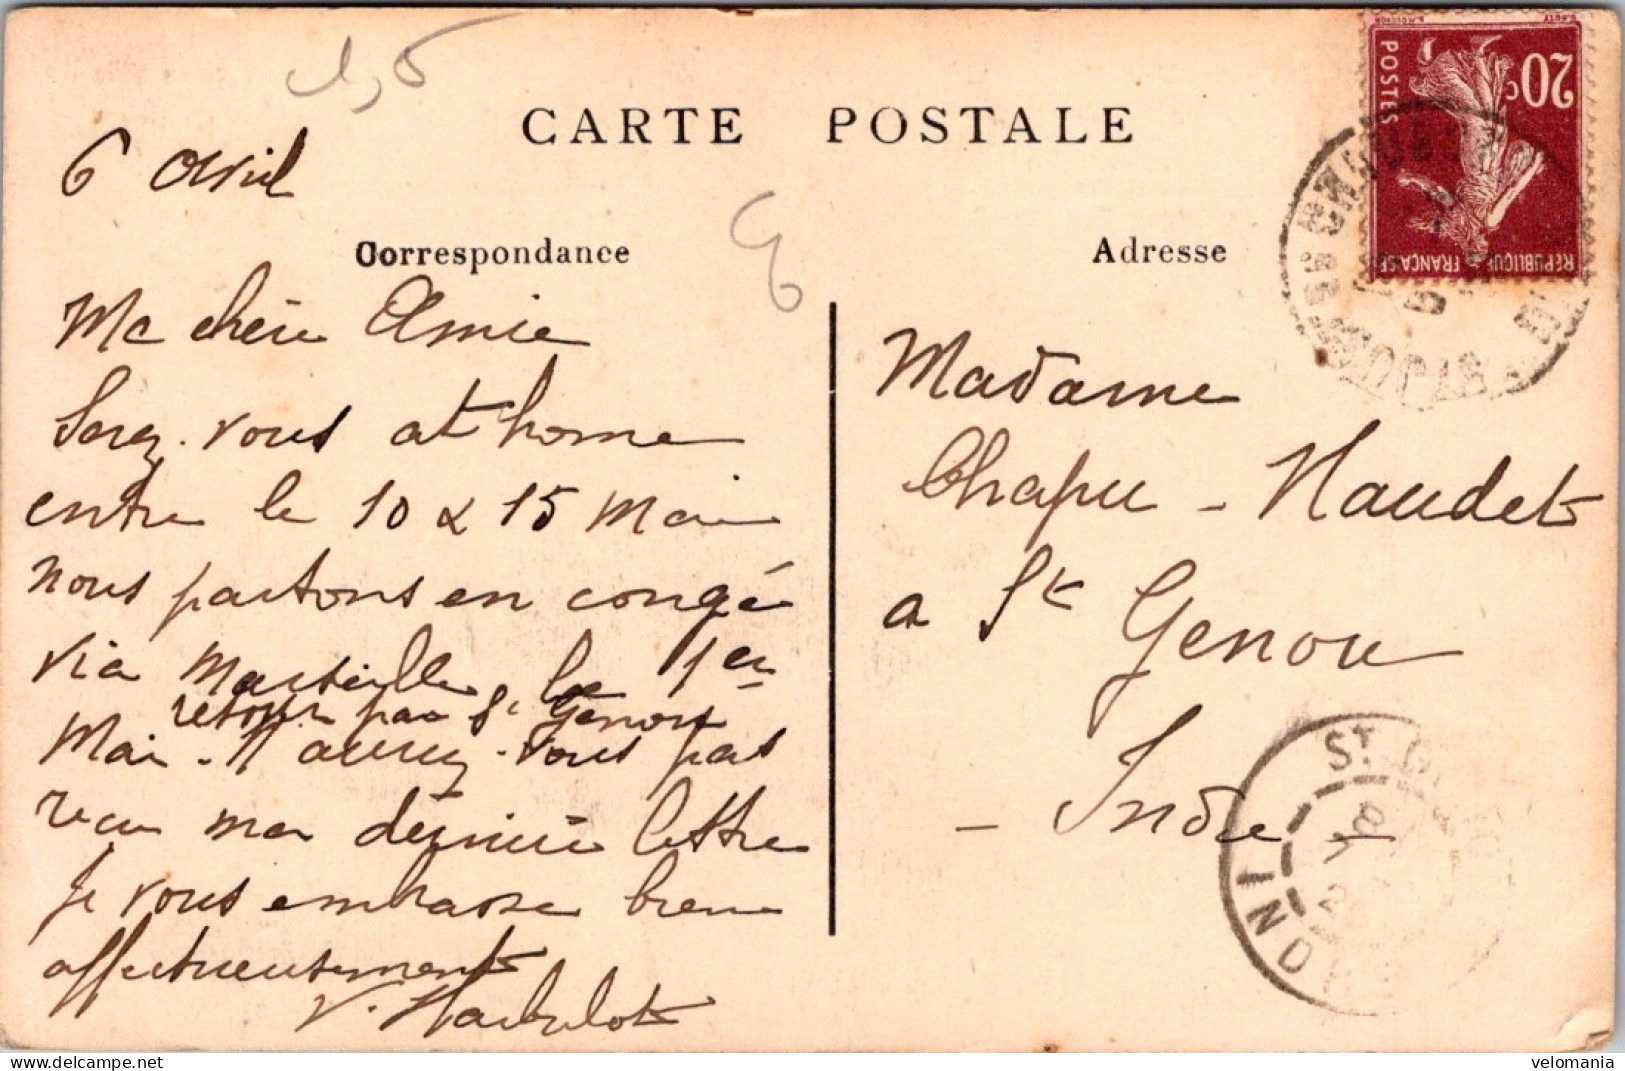 1,5
CARTE POSTALE
6 Avril
Correspondance
Adresse
Ma chère Amie
Serez-vous at home
entre le 10 & 15 Mai
nous partons en congé
via Marseille, le 1er
retour par St Genou
Mai - N'aurez-vous pas
recu ma dernière lettre
Je vous embrasse bien
affectueusement
Madame
Chapu - Naudet
a St Genou
- Indre -
20c
POSTES
REPUBLIQUE FRANÇAISE
ST
velomania